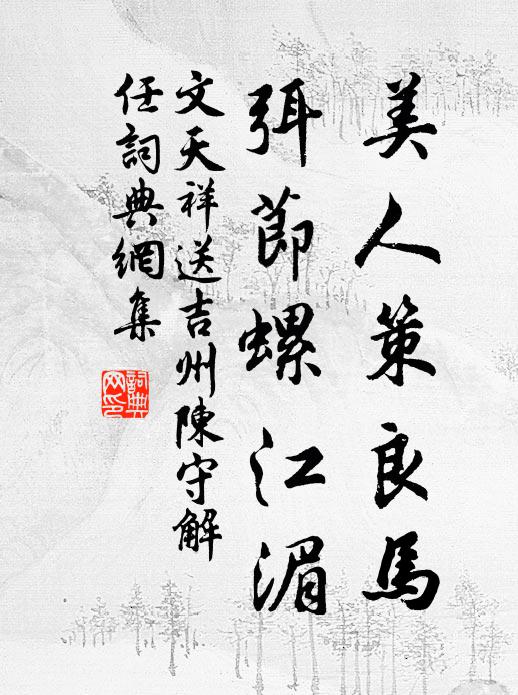 美人策良馬
弭節螺江湄
文天祥送吉州陳守解
任詞典網集
詞典
网印